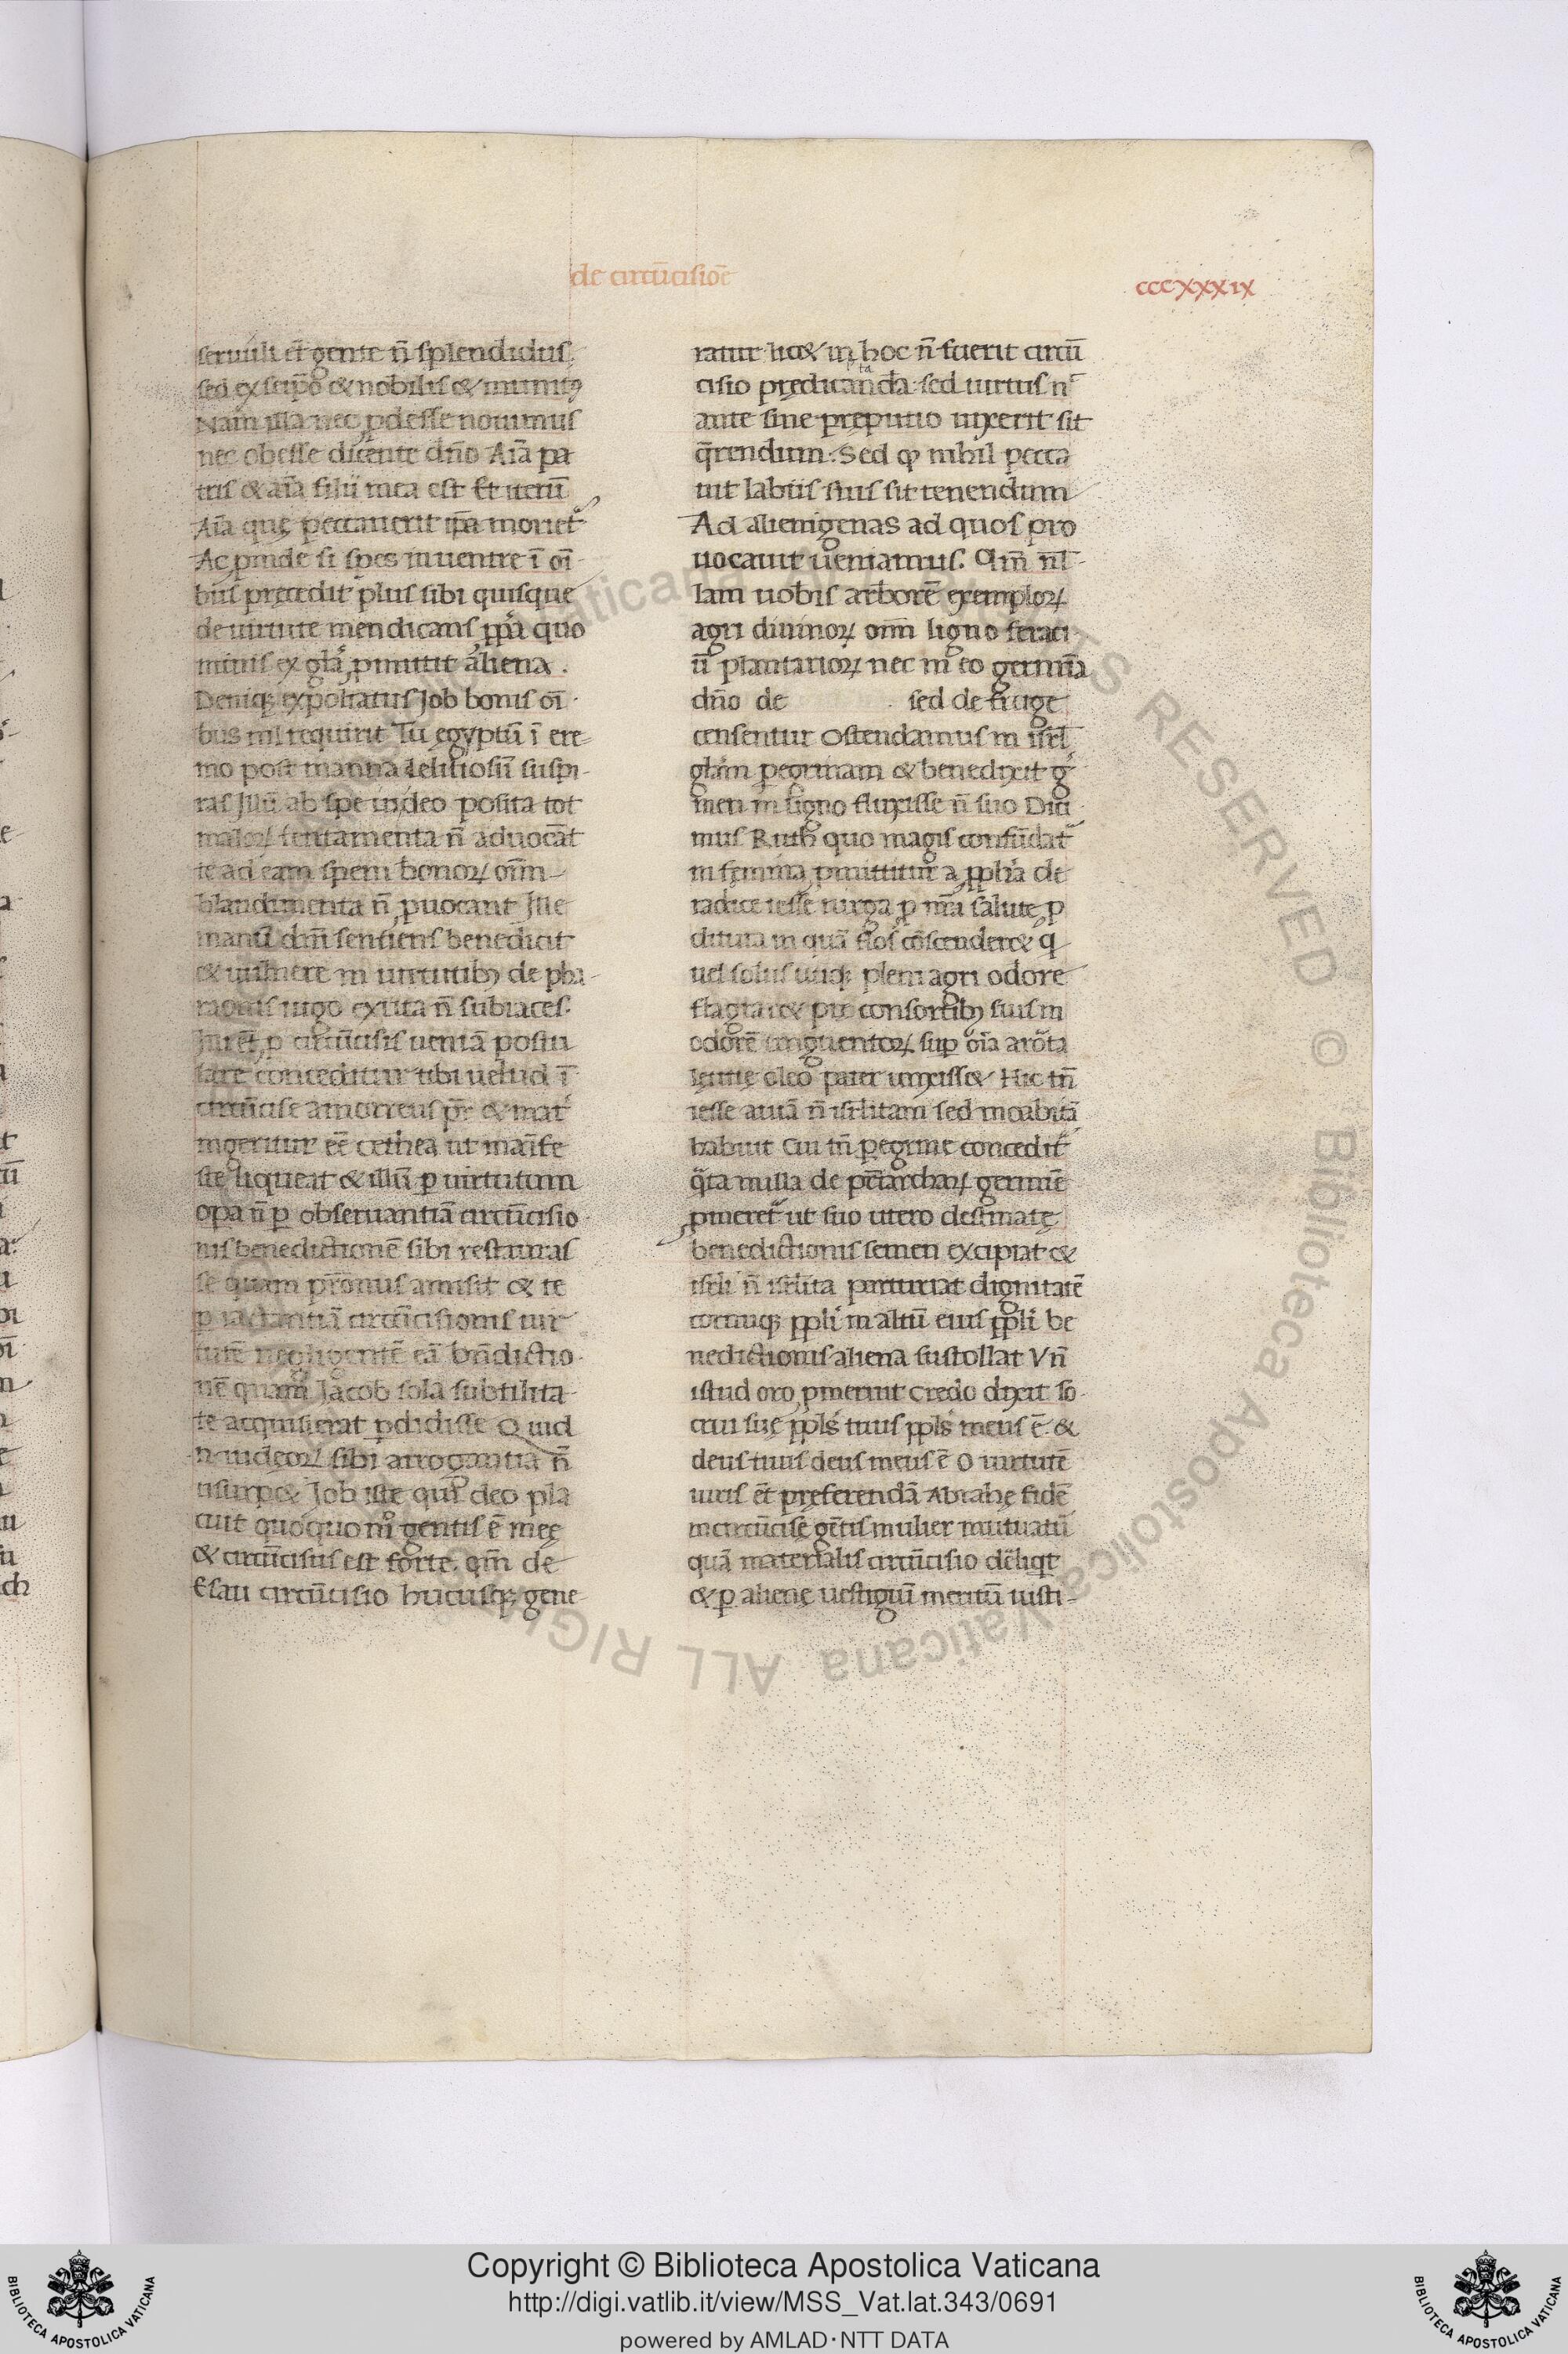 de circūcisiōe
cccxxxix
seruili et̄ gente n̄ splendidus.
sed ex seip̄o & nobilis & immis
Nam illa nec ꝓdesse nouimus
nec obesse dicente dn̄o Aīa pa
tris & aīa filii mea est Et iterū
Aīa quę peccauerit ip̄a moriet᷑
Ac ꝓinde si spes in uentre ī oī
bus precedit plus sibi quisque
de uirtute mendicans ꝓp̄a quo
minus ex gl̄a ꝓmittit aliena.
Deniqꝫ expoliatus Job bonis oī
bus nil requirit Tu egyptū ī ere
mo post manna delitiosū suspi
ras Illū ab spe in deo posita tot
maloꝝ tentamenta n̄ aduocāt
te ad eam spem bonoꝝ om̄
blandimenta n̄ ꝓuocant Ille
manū dn̄i sentiens benedicit
& uulnere in uirtutibꝫ de pha
raonis iugo exuta n̄ subiaces.
ꝑ circūcisis ueniā postu
lare conceditur tibi uelud ī
circūcise amorreus pr̄ & mat᷑
ingeritur eē cethea ut manife
ste liqueat & illū ꝑ uirtutum
opa n̄ ꝑ obseruantiā circūcisio
nis benedictionē sibi restauras
se quam pronus amisit & te
ꝑ iactantiā circūcisionis uir
tutē negligentē eā bn̄dictio
nē quam Jacob sola subtilita
te acquisierat ꝑdidisse Quid
n iudeoꝝ sibi arrogantia n̄
usurp& Job iste qui deo pla
cuit quoquo m̊ gentis ē meę
& circūcisus est forte. qm̄ de
Esau circūcisio hucusqꝫ gene
ratur lic& in hoc n̄ fuerit circū
cisio predicanda sed uirtus n
ta
ante sine preputio uixerit sit
q̄rendum. Sed ꝙ nihil pecca
uit labiis suis sit tenendum
Ad alienigenas ad quos pro
uocauit ueniamus. Qm̄ nl̄
lam uobis arborē exemploꝝ
agri diuinoꝝ om̄ ligno feraci
ū plantarioꝝ nec in eo germīa
dn̄o de sed de fruge
censentur Ostendamus in isrl̄
glām peregrinam & benedixit g
men in signo fluxisse n̄ suo Dici
mus Ruth quo magis confūdat᷑
in femina ꝓmittitur a ꝓpha de
radice iesse uirga ꝓ nr̄a salute ꝓ
ditura in quā flos cōscender& q
uel solus utiqꝫ pleni agri odore
flagrar& pre consortibꝫ suis in
odorē unguentoꝝ sup oīa arōta
lętitię oleo pater unxiss& Hic tn̄
iesse auiā n̄ isrl̄itam sed moabitā
habuit Cui tn̄ peregrine concedit᷑
q̄ta nulla de patriarchaꝝ germīe
ꝓmeret᷑ ut suo utero destinatę
benedictionis semen excipiat &
isrl̄i n̄ isrl̄ita parturiat dignitatē
cornuqꝫ ppl̄i in altū eius ppl̄i be
nedictionis aliena sustollat Vn̄
istud oro ꝓmeruit Credo dixit so
crui suę ppl̄s tuus ppl̄s meus ē &
deus tuus deus meus ē O uirtutē
uiris et̄ preferendā Abrahę fidē
incircūcisę gētis mulier mutuatū
quā materialis circūcisio deliqt
& ꝑ alienę uestigiū meritū iusti
Copyright © Biblioteca Apostolica Vaticana
http://digi.vatlib.it/view/MSS_Vat.lat.343/0691
powered by AMLAD·NTT DATA